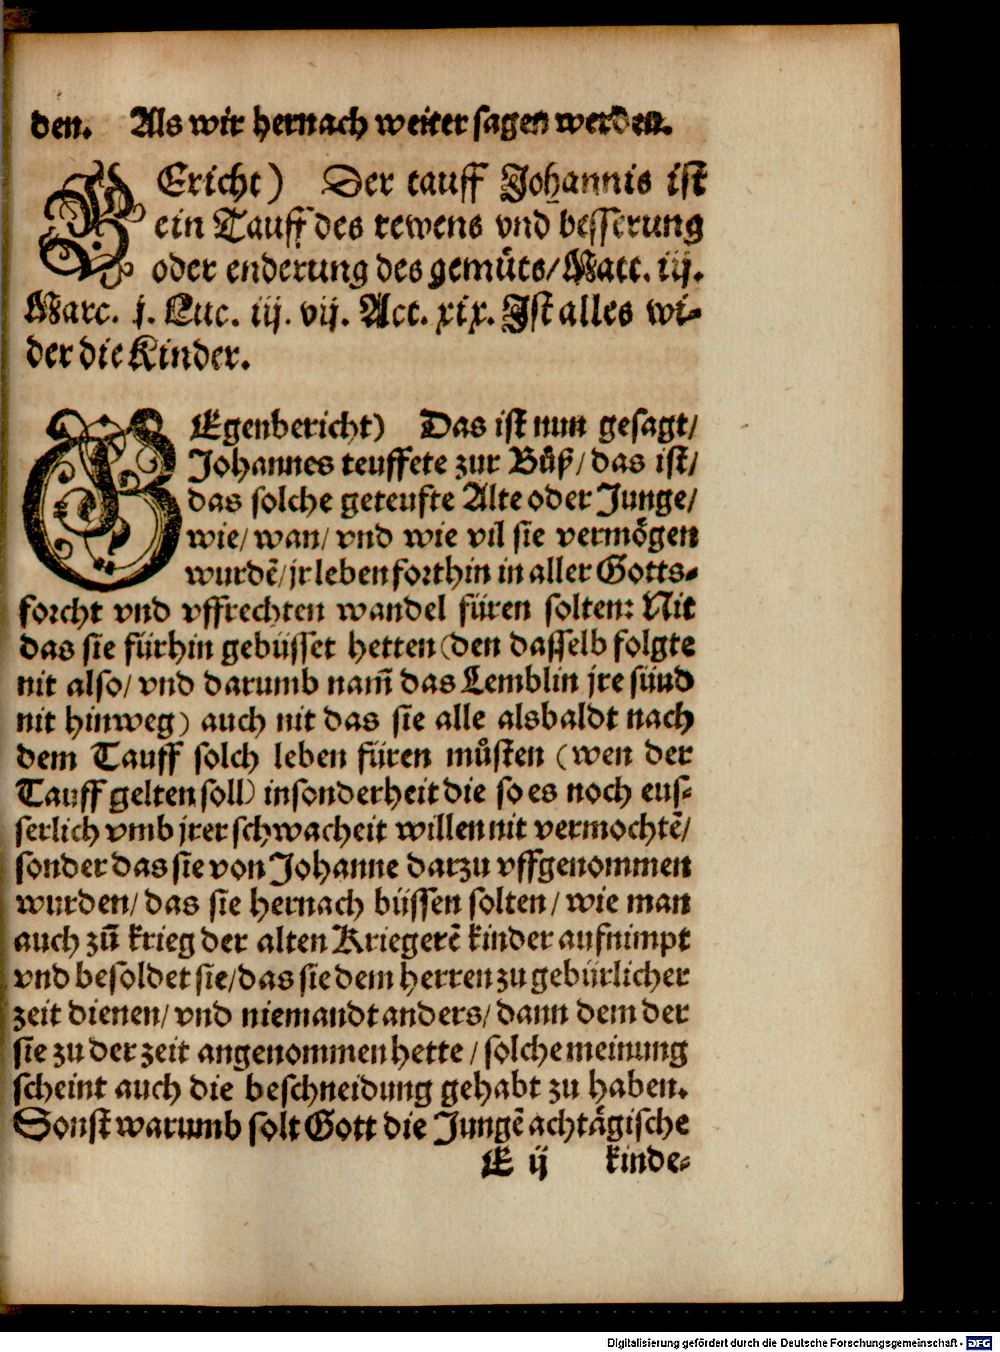 den. Als wir hernach weiter sagen werden.
BEricht) Der tauff Johannis ist
ein Tauff des rewens vnd besserung
oder enderung des gemüts/ Matt. iij.
Marc. j. Luc. iij. vij. Act. xix. Ist alles wi-
der die Kinder.
GEgenbericht) Das ist nun gesagt/
Johannes teuffete zur Bůß/ das ist/
das solche geteufte Alte oder Junge/
wie/ wan/ vnd wie vil sie vermögen
wurdẽ/ jr leben forthin in aller Gotts-
forcht vnd vffrechten wandel füren solten: Nit
das sie fürhin gebüsset hetten (den dasselb folgte
nit also/ vnd darumb nam̃ das Lemblin jre sünd
nit hinweg) auch nit das sie alle alsbaldt nach
dem Tauff solch leben füren můsten (wen der
Tauff gelten soll) insonderheit die so es noch eus-
serlich vmb jrer schwacheit willen nit vermochtẽ/
sonder das sie von Johanne darzu vffgenommen
wurden/ das sie hernach büssen solten/ wie man
auch zů krieg der alten Kriegerẽ kinder aufnimpt
vnd besoldet sie/ das sie dem herren zu gebürlicher
zeit dienen/ vnd niemandt anders/ dann dem der
sie zu der zeit angenommen hette / solche meinung
scheint auch die beschneidung gehabt zu haben.
Sonst warumb solt Gott die Jungẽ achtägische
E ij kinde-
Digitalisierung gefördert durch die Deutsche Forschungsgemeinschaft - DFG